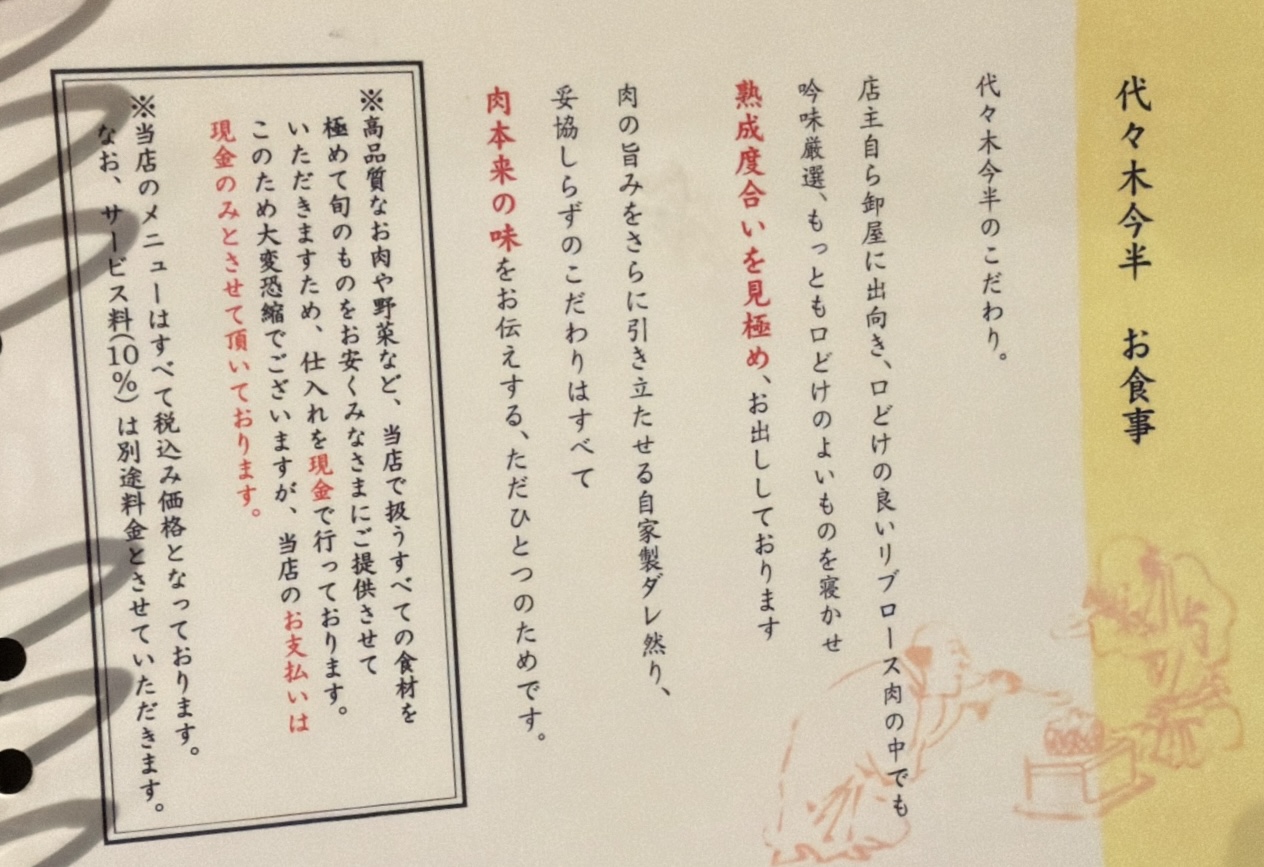 代々木今半　お食事
代々木今半のこだわり。
店主自ら卸屋に出向き、口どけの良いリブロース肉の中でも
吟味厳選、もっとも口どけのよいものを寝かせ
熟成度合いを見極め、お出ししております
肉の旨みをさらに引き立たせる自家製ダレ然り、
妥協しらずのこだわりはすべて
肉本来の味をお伝えする、ただひとつのためです。
※高品質なお肉や野菜など、当店で扱うすべての食材を
極めて旬のものをお安くみなさまにご提供させて
いただきますため、仕入れを現金で行っております。
このため大変恐縮でございますが、当店のお支払いは
現金のみとさせて頂いております。
※当店のメニューはすべて税込み価格となっております。
なお、サービス料(10%)は別途料金とさせていただきます。